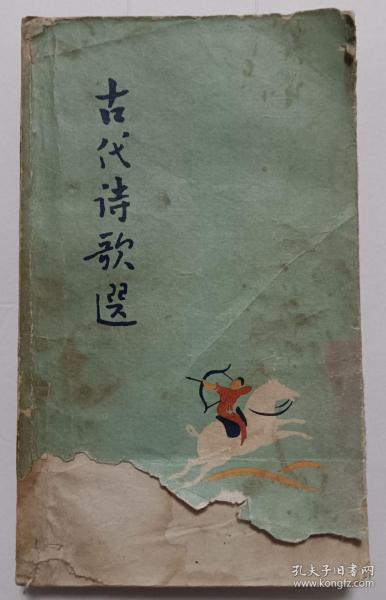 古代诗歌选
孔夫子旧书网
www.kongfz.com